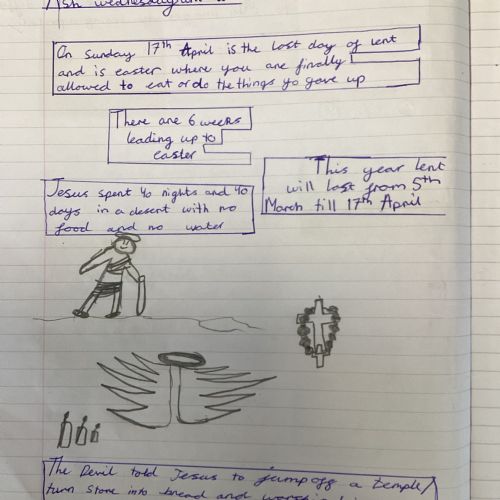 Ash wednesday
On Sunday 17th April is the last day of lent
and is easter where you are finally
allowed to eat or do the things yo gave up
There are 6 weeks
leading up to
easter
This year lent
will last from 5th
March till 17th April
Jesus spent 40 nights and 40
days in a desert with no
food and no water
The Devil told Jesus to jump off a temple/
turn stone into bread and